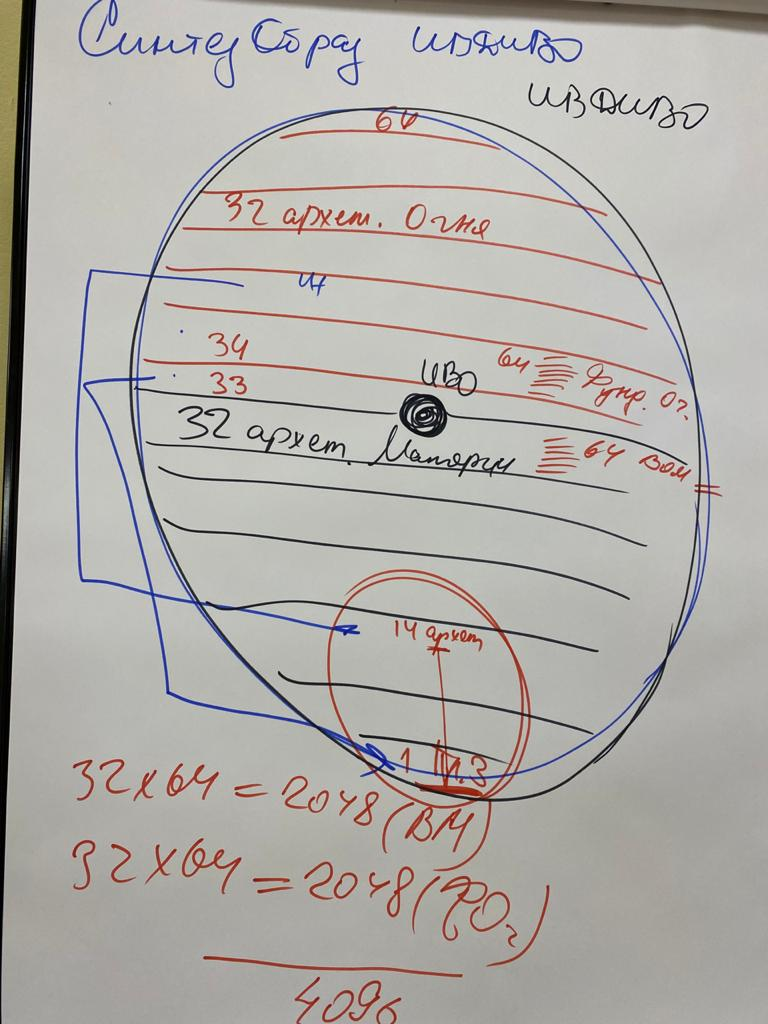 СинтезОбраз ИВДИВО
ИВДИВО
64
32 архет. Огня
34
33
ИВО
64 Фунр. Ог.
32 архет. Материи
64 ВОМ
14 архет
1 Пл.З
32х64 = 2048 (ВМ)
32х64 = 2048 (ФОг)
4096